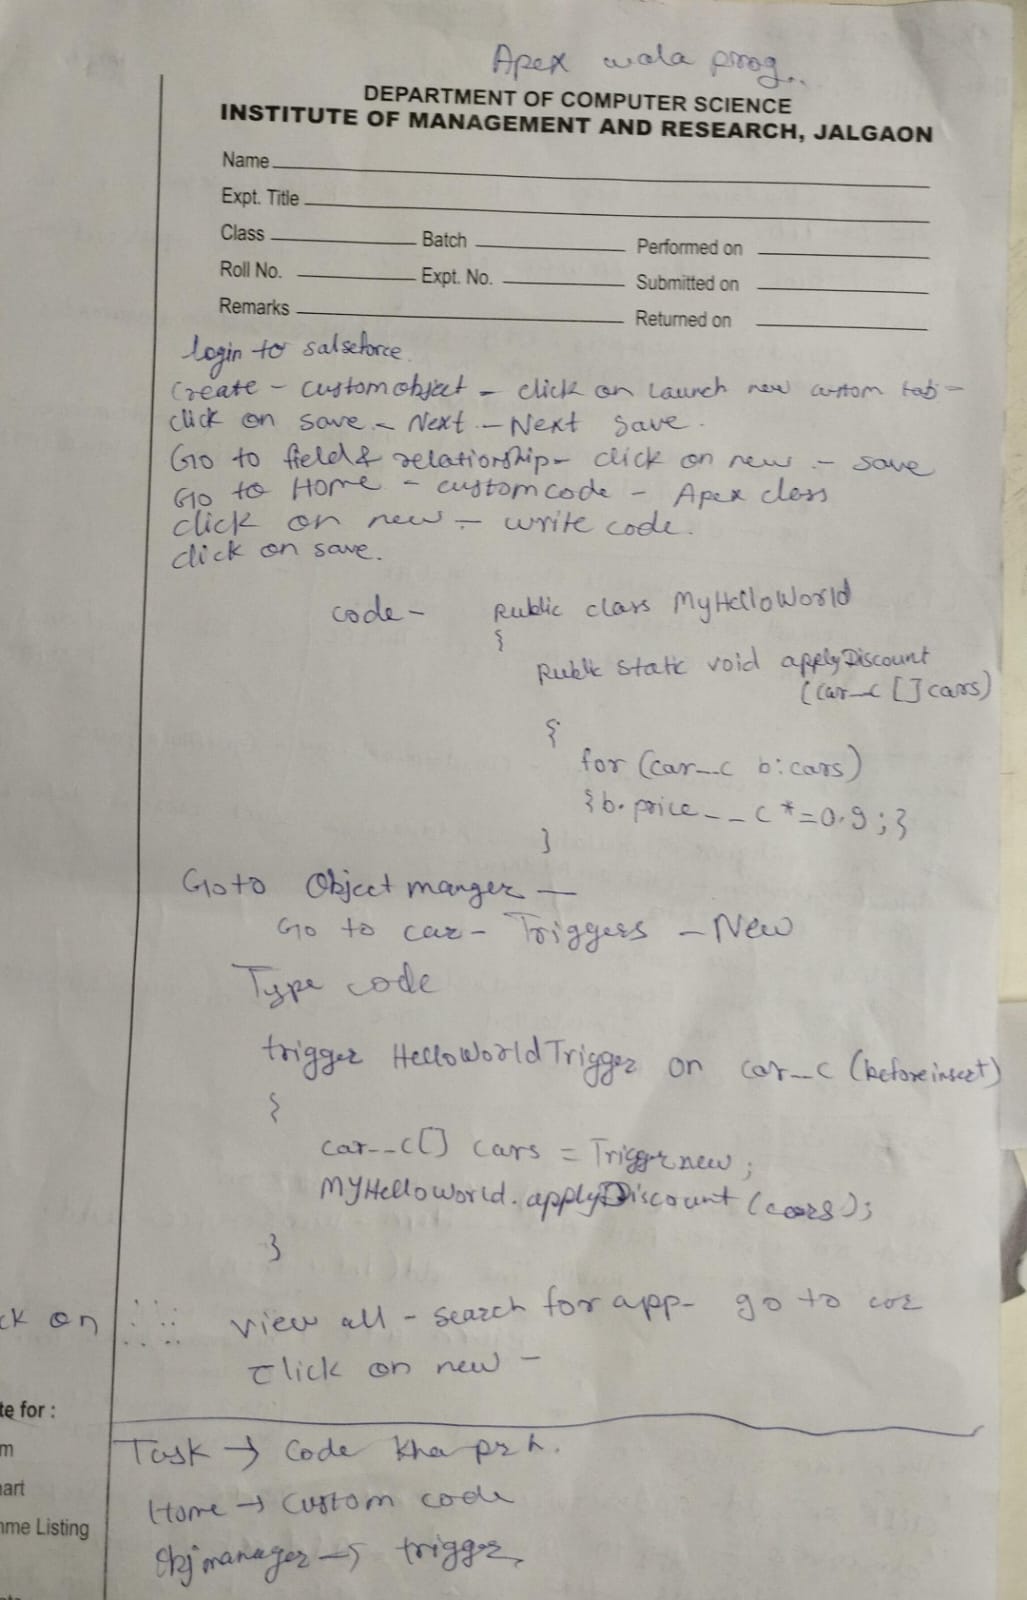 Apex wala prog..
DEPARTMENT OF COMPUTER SCIENCE
INSTITUTE OF MANAGEMENT AND RESEARCH, JALGAON
Name
Expt. Title
Class Batch Performed on
Roll No. Expt. No. Submitted on
Remarks Returned on
login to salseforce.
Create - custom object - click on Launch new custom tab -
click on save - Next - Next save.
Go to field & relationship - click on new - save
Go to Home - custom code - Apex class
click on new - write code.
click on save.
code - Public class MyHelloWorld
{
Public static void applyDiscount
(car__c [] cars)
{
for (car__c b: cars)
{b.price__c *=0.9;}
}
Goto Object manger -
Go to car - Triggers - New
Type code
trigger HelloWorldTrigger on car__c (before insert)
{
car__c[] cars = Trigger.new;
MYHelloworld.applyDiscount (cars);
}
ck on view all - search for app - go to car
click on new -
te for :
Task → Code kha pr h.
m
Home → Custom code
art
me Listing
Obj manager → trigger